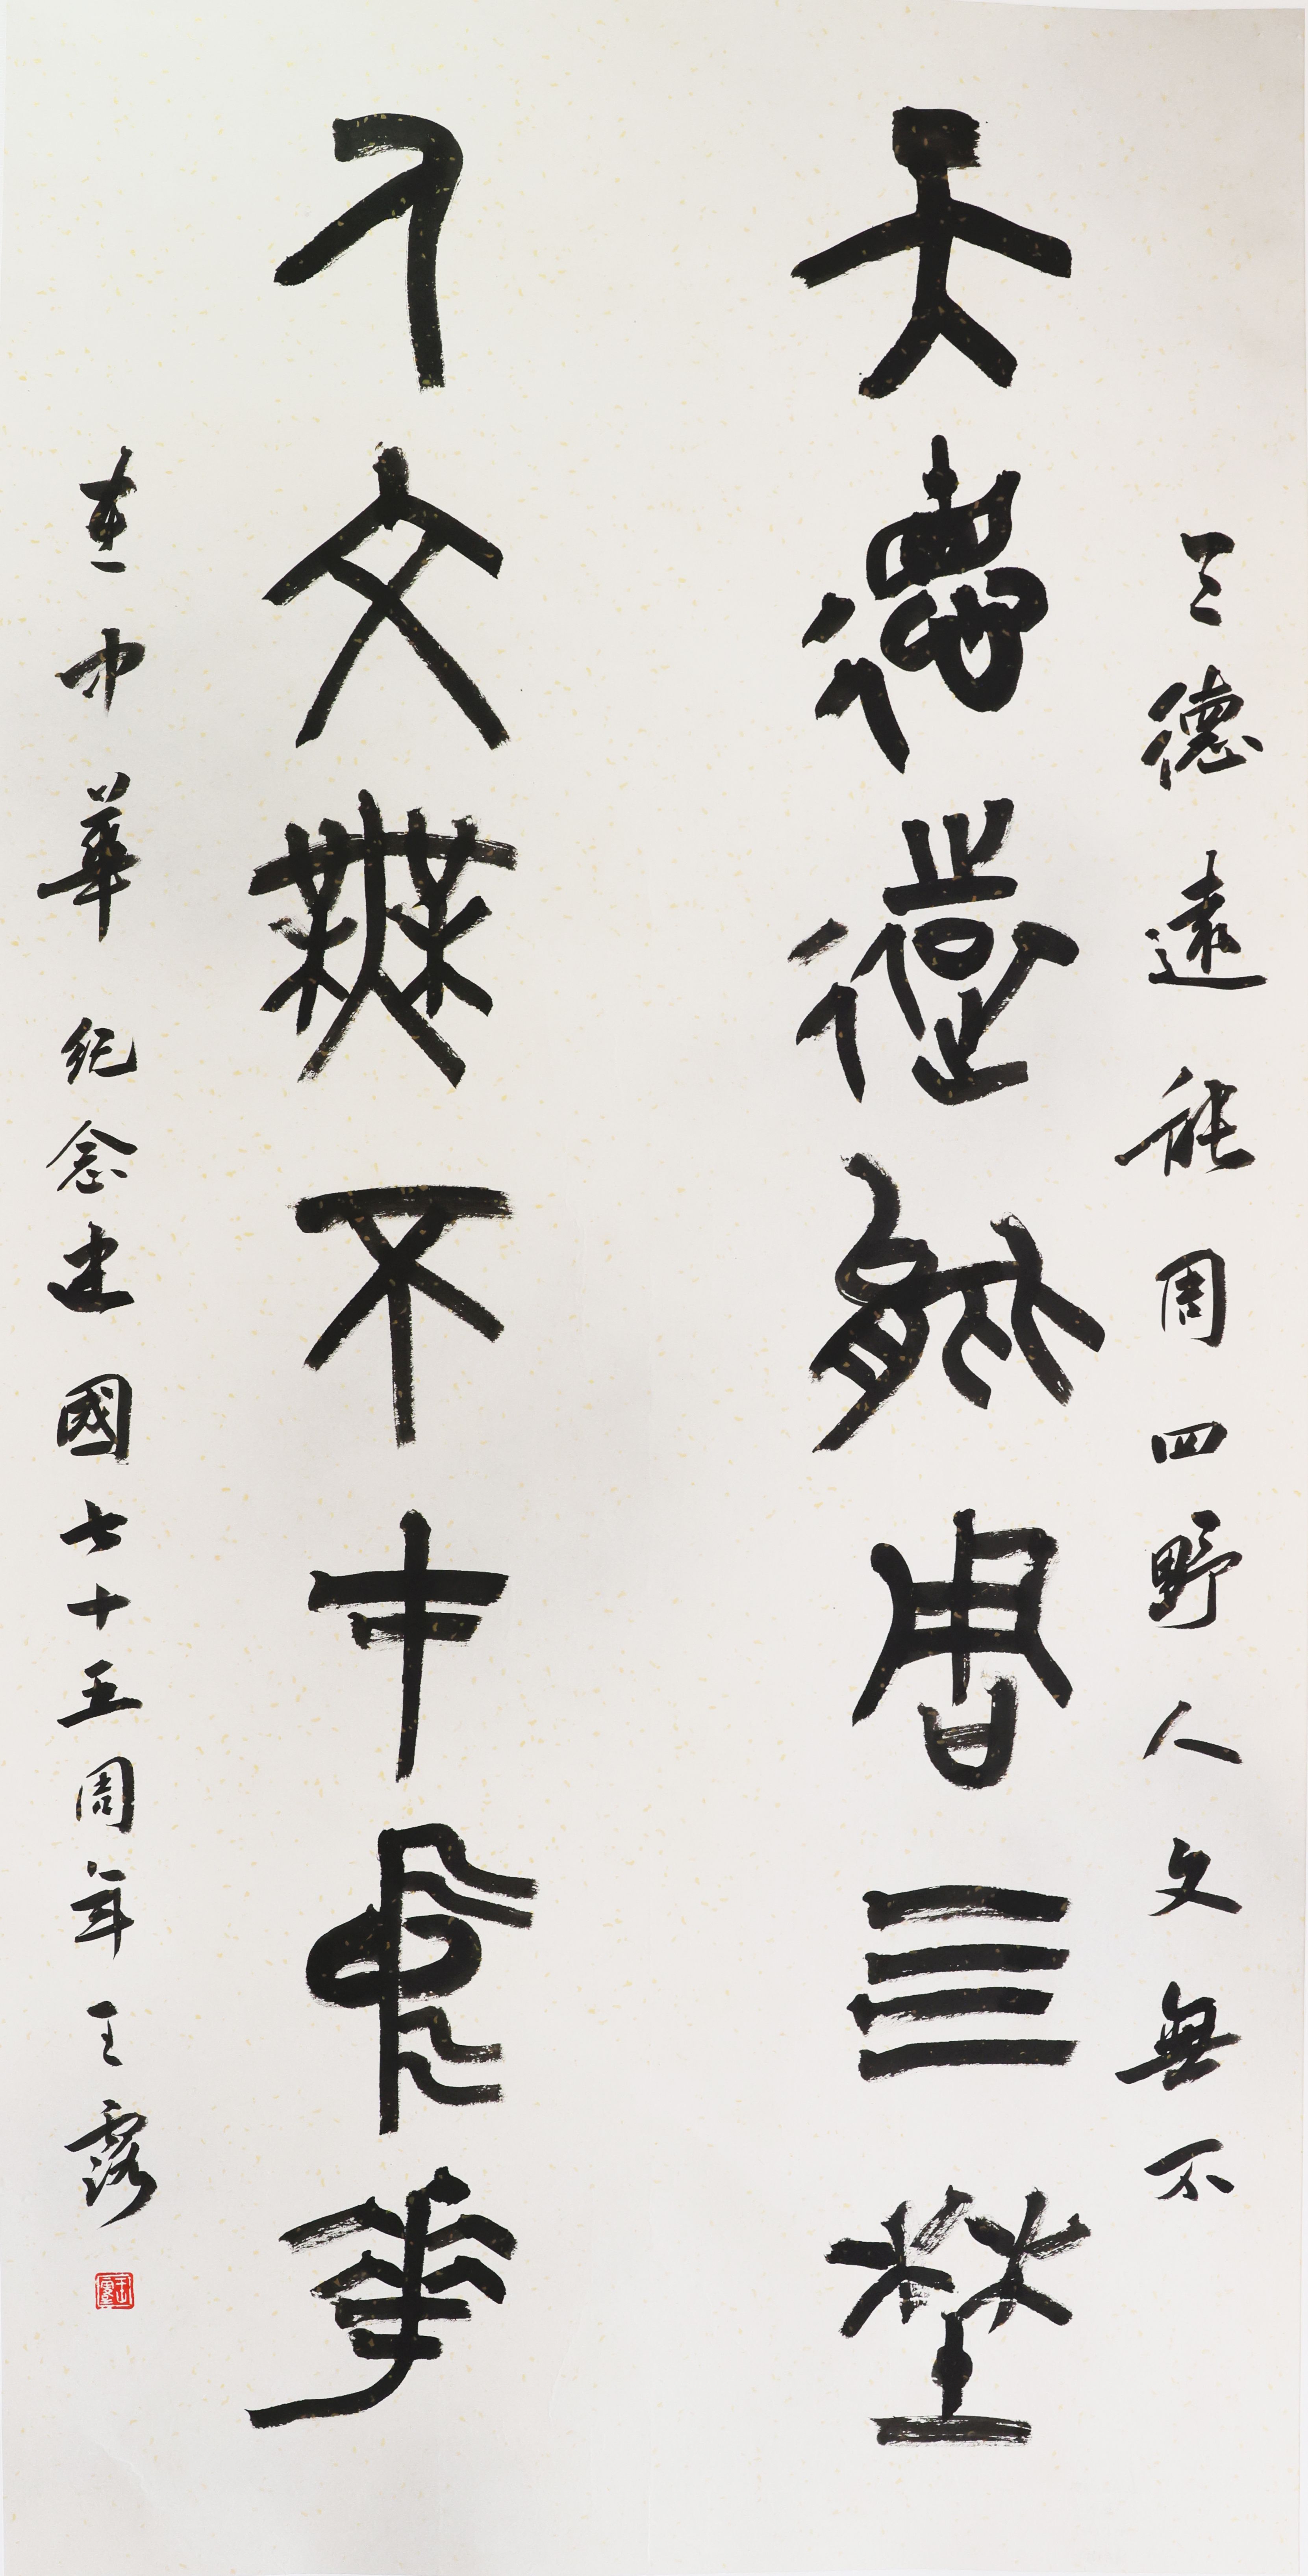 天德遠能周四野人文無不
天德遠能周四埜
人文無不在中華
在中華 纪念建國七十五周年 王露